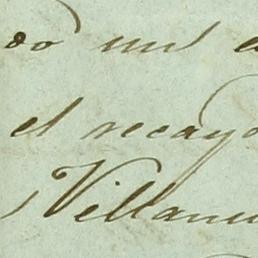 do mil
el recayo
Villanu